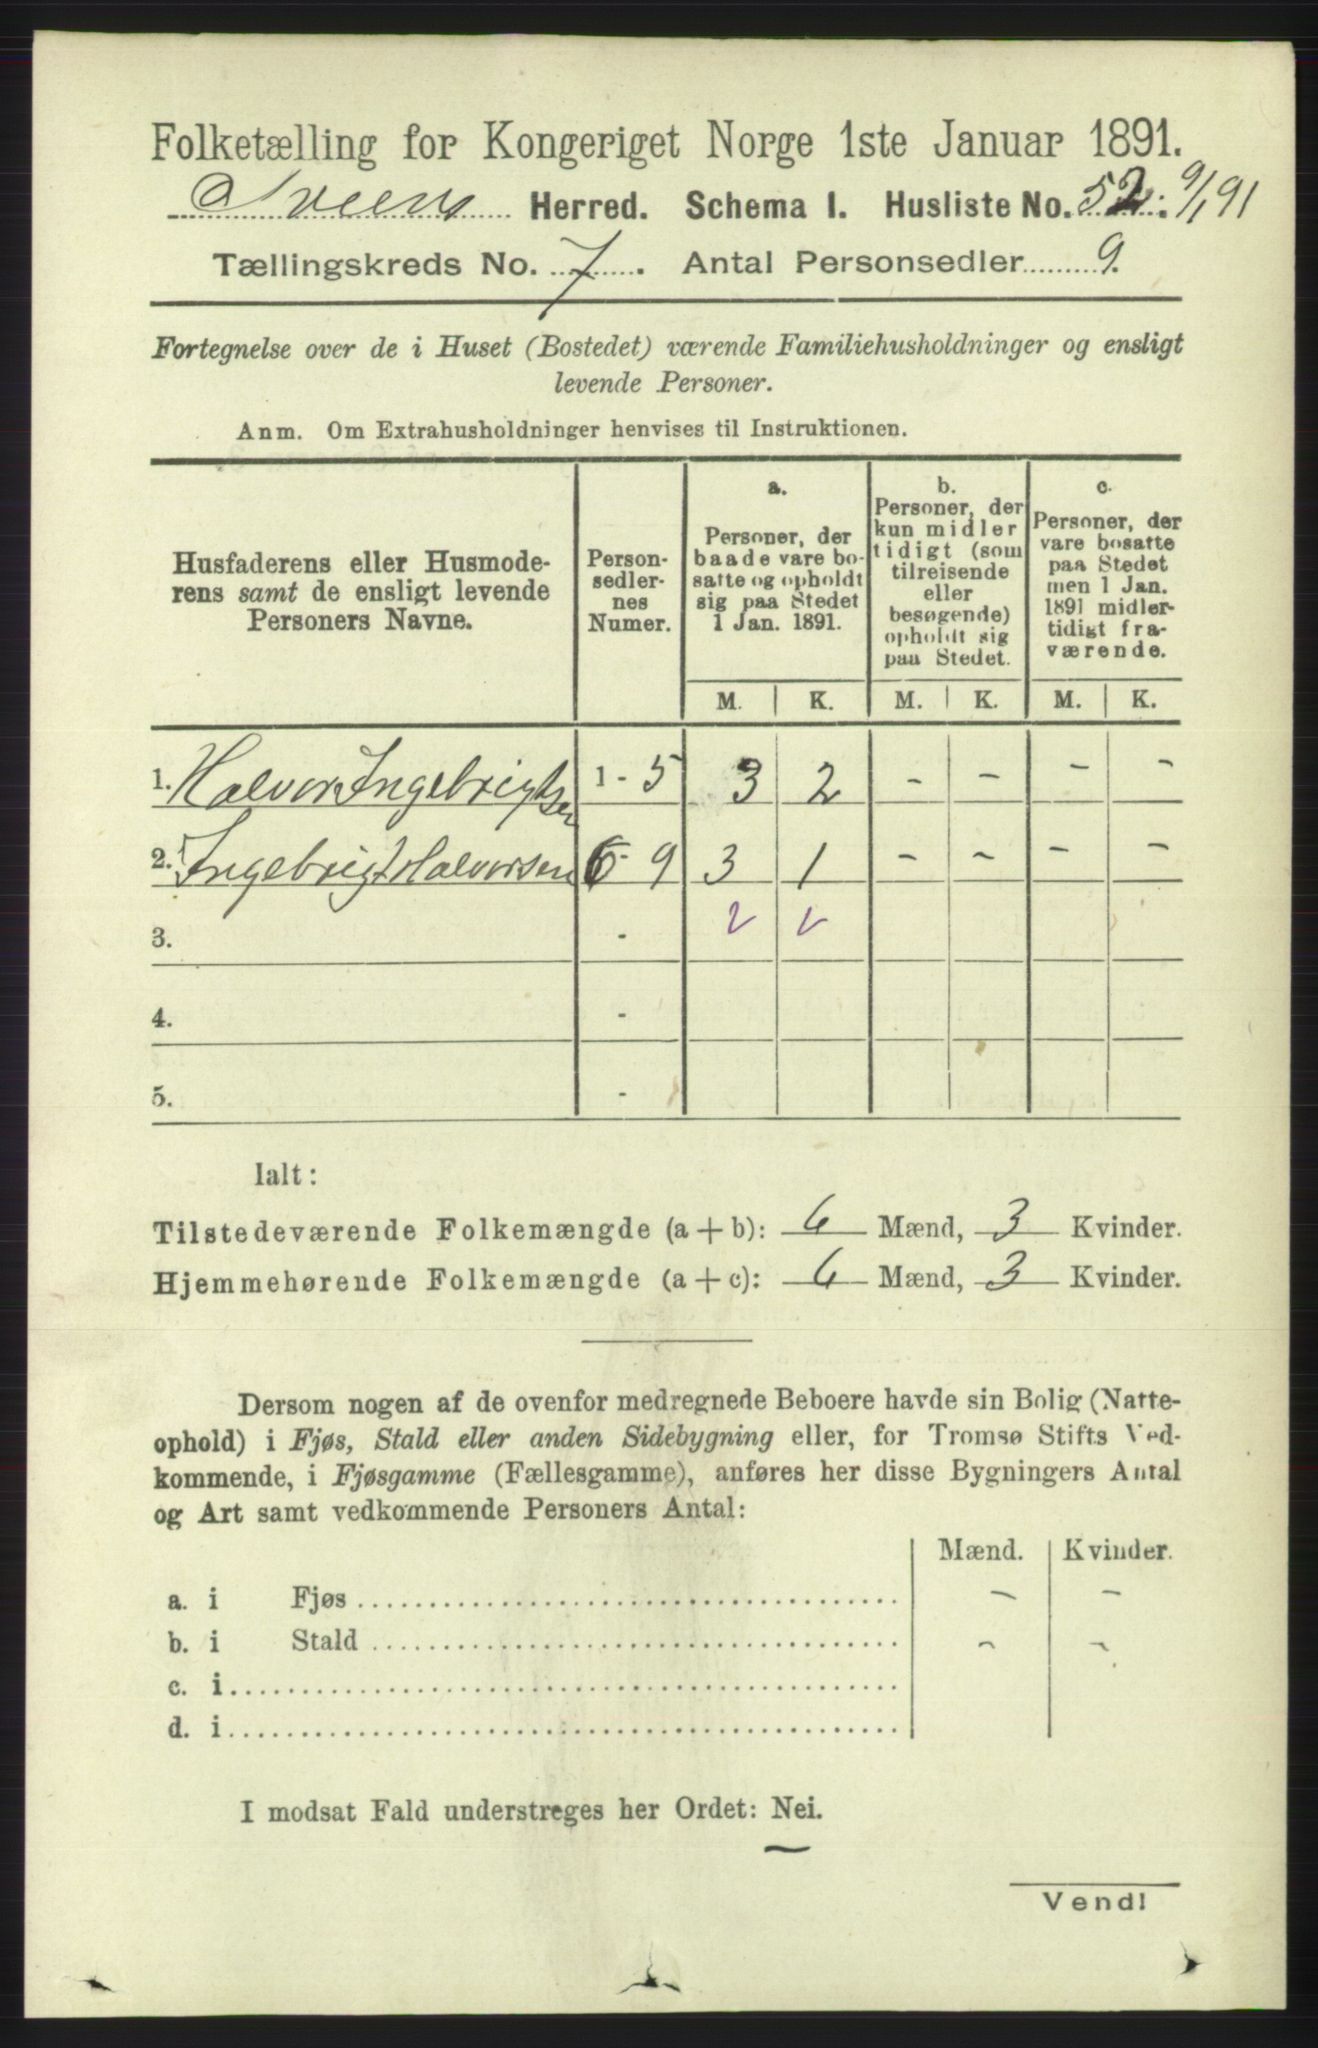 Folketælling for Kongeriget Norge 1ste Januar 1891.
Sveen Herred. Schema I. Husliste No. 52. 9/1 91
Tællingskreds No. 7. Antal Personsedler 9.
Fortegnelse over de i Huset (Bostedet) værende Familiehusholdninger og ensligt
levende Personer.
Anm. Om Extrahusholdninger henvises til Instruktionen.
Husfaderens eller Husmode-
rens samt de ensligt levende
Personers Navne.
Person-
sedler-
nes
Numer.
a.
Personer, der
baade vare bo-
satte og opholdt
sig paa Stedet
1 Jan. 1891.
b.
Personer, der
kun midler
tidigt (som
tilreisende
eller
besøgende)
opholdt sig
paa Stedet.
c.
Personer, der
vare bosatte
paa Stedet
men 1 Jan.
1891 midler-
tidigt fra-
værende.
M. K. M. K. M. K.
1. Halvor Ingebrigtsen 1 - 5 3 2 - - - -
2. Ingebrigt Halvorsen 6 - 9 3 1 - - - -
3. -
4. -
5. -
Ialt:
Tilstedeværende Folkemængde (a + b): 6 Mænd, 3 Kvinder.
Hjemmehørende Folkemængde (a + c): 6 Mænd, 3 Kvinder.
Dersom nogen af de ovenfor medregnede Beboere havde sin Bolig (Natte-
ophold) i Fjøs, Stald eller anden Sidebygning eller, for Tromsø Stifts Ved-
kommende, i Fjøsgamme (Fællesgamme), anføres her disse Bygningers Antal
og Art samt vedkommende Personers Antal:
Mænd. Kvinder.
a. i Fjøs - -
b. i Stald - -
c. i
d. i
I modsat Fald understreges her Ordet: Nei.
Vend!